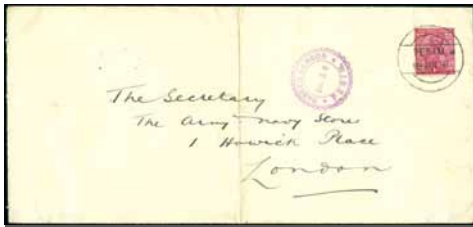 The Secretary
The Army Navy Stores
1 Howick Place
London